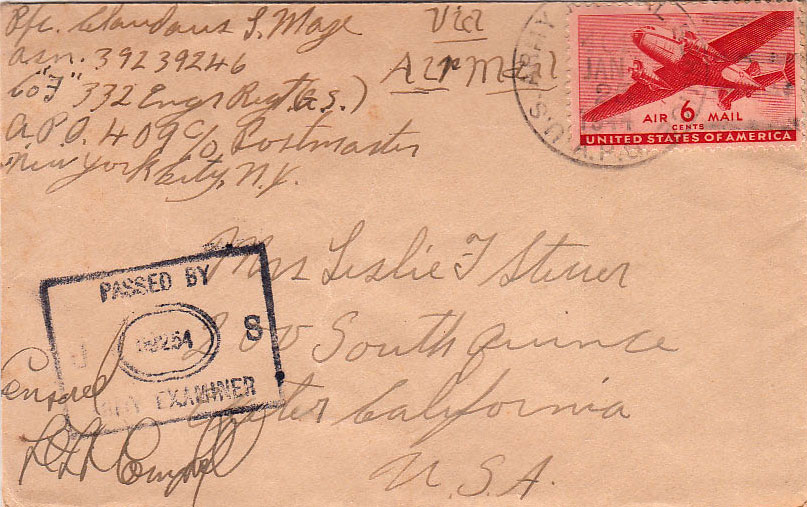 Pfc. Claudaus S. Maze
asn. 39239246
Co "F" 332 Engr Regt (G.S.)
A.P.O. 409 C/o Postmaster
New York City, N.Y.
Via
Air Mail
U.S. ARMY
A.P.O.
JAN
AIR 6 MAIL
CENTS
UNITED STATES OF AMERICA
Mrs Leslie F Stiner
200 South Quince
Exeter California
U.S.A.
PASSED BY
U S
ARMY EXAMINER
Censored